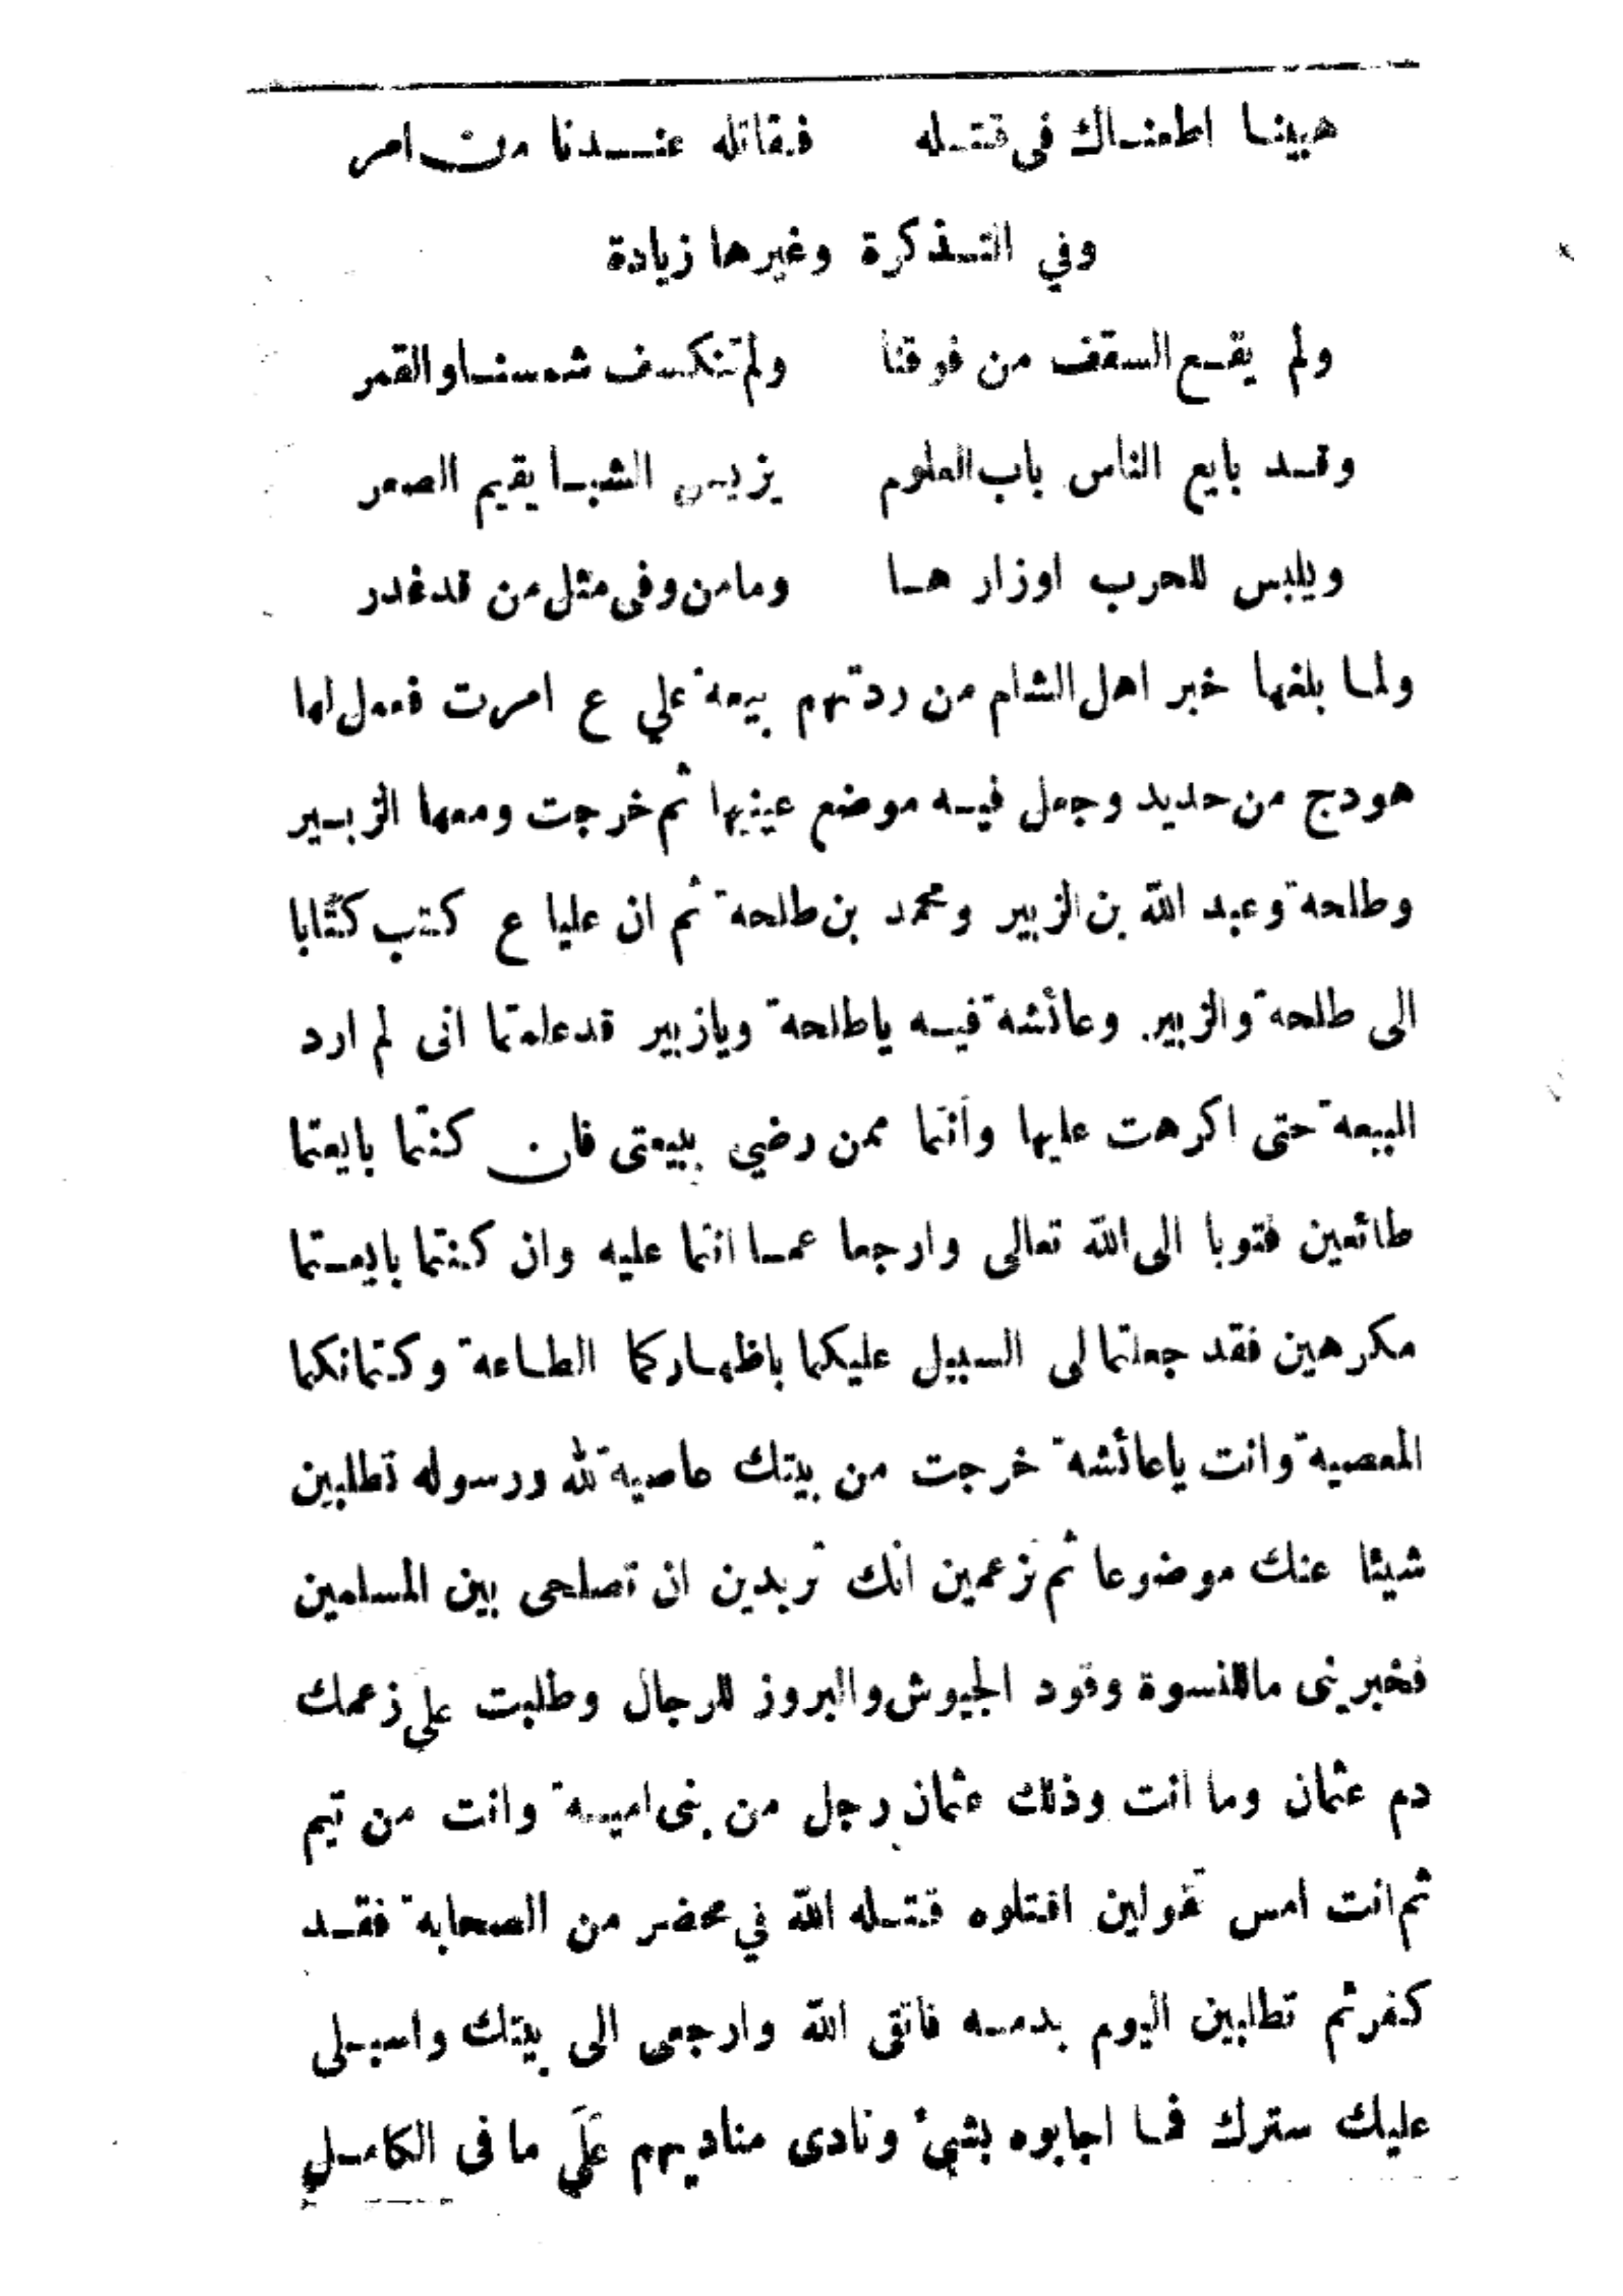 هبينا اطعناك فى قتله فقاتله عندنا من امر
وفي التذكرة وغيرها زيادة
ولم يقع السقف من فوقنا ولم تنكسف شمسنا والقمر
وقد بايع الناس باب العلوم يزيس الشبا يقيم الصعر
ويلبس للحرب اوزارها وما من وفى مثل من قد غدر
ولما بلغها خبر اهل الشام من ردتهم بيعة علي ع امرت فعمل لها
هودج من حديد وجعل فيه موضع عينيها ثم خرجت ومعها الزبير
وطلحة وعبد الله بن الزبير ومحمد بن طلحة ثم ان عليا ع كتب كتابا
الى طلحة والزبير وعائشة فيه ياطلحة ويازبير قد علمتما انى لم ارد
البيعة حتى اكرهت عليها وانتما ممن رضي ببيعتى فان كنتما بايعتما
طائعين فتوبا الى الله تعالى وارجعا عما انتما عليه وان كنتما بايعتما
مكرهين فقد جعلتما لى السبيل عليكما باظهاركما الطاعة وكتمانكما
المعصية وانت ياعائشة خرجت من بيتك عاصية لله ورسوله تطلبين
شيئا عنك موضوعا ثم تزعمين انك تريدين ان تصلحى بين المسلمين
فخبرينى ما للنسوة وقود الجيوش والبروز للرجال وطلبت على زعمك
دم عثمان وما انت وذلك عثمان رجل من بنى امية وانت من تيم
ثم انت امس تقولين اقتلوه قتله الله في محضر من الصحابة فقد
كفر ثم تطلبين اليوم بدمه فاتقى الله وارجعى الى بيتك واسبلى
عليك سترك فما اجابوه بشئ ونادى مناديهم عَلَي ما فى الكامل